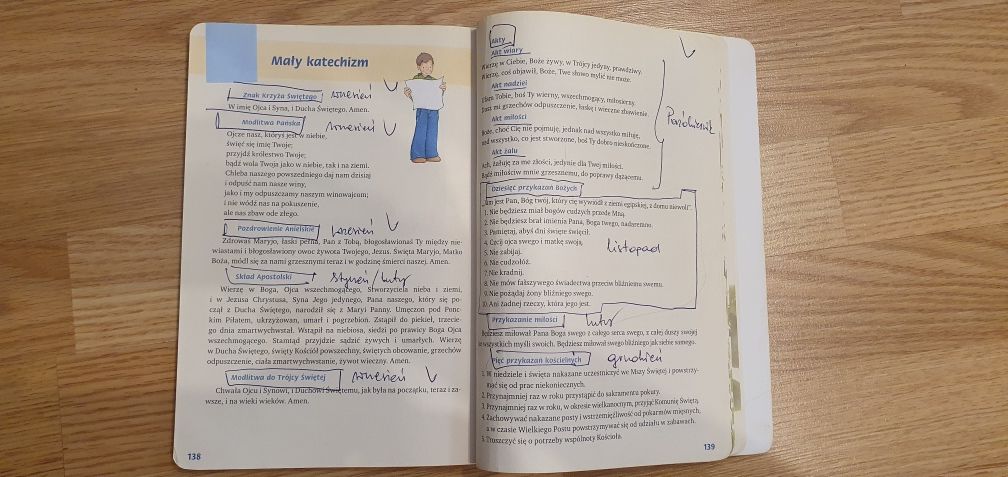 Mały katechizm
Znak Krzyża Świętego wrzesień
W imię Ojca i Syna, i Ducha Świętego. Amen.
Modlitwa Pańska wrzesień
Ojcze nasz, któryś jest w niebie,
święć się imię Twoje;
przyjdź królestwo Twoje;
bądź wola Twoja jako w niebie, tak i na ziemi.
Chleba naszego powszedniego daj nam dzisiaj
i odpuść nam nasze winy,
jako i my odpuszczamy naszym winowajcom;
i nie wódź nas na pokuszenie,
ale nas zbaw ode złego.
Pozdrowienie Anielskie wrzesień
Zdrowaś Maryjo, łaski pełna, Pan z Tobą, błogosławionaś Ty między nie-
wiastami i błogosławiony owoc żywota Twojego, Jezus. Święta Maryjo, Matko
Boża, módl się za nami grzesznymi teraz i w godzinę śmierci naszej. Amen.
Skład Apostolski styczeń / luty
Wierzę w Boga, Ojca wszechmogącego, Stworzyciela nieba i ziemi,
i w Jezusa Chrystusa, Syna Jego jedynego, Pana naszego, który się po-
czął z Ducha Świętego, narodził się z Maryi Panny. Umęczon pod Ponc-
kim Piłatem, ukrzyżowan, umarł i pogrzebion. Zstąpił do piekieł, trzecie-
go dnia zmartwychwstał. Wstąpił na niebiosa, siedzi po prawicy Boga Ojca
wszechmogącego. Stamtąd przyjdzie sądzić żywych i umarłych. Wierzę
w Ducha Świętego, święty Kościół powszechny, świętych obcowanie, grzechów
odpuszczenie, ciała zmartwychwstanie, żywot wieczny. Amen.
Modlitwa do Trójcy Świętej wrzesień
Chwała Ojcu i Synowi, i Duchowi Świętemu, jak była na początku, teraz i za-
wsze, i na wieki wieków. Amen.
138
Akty
Akt wiary
Wierzę w Ciebie, Boże żywy, w Trójcy jedyny, prawdziwy.
Wierzę, coś objawił, Boże, Twe słowo mylić nie może.
Akt nadziei
Ufam Tobie, boś Ty wierny, wszechmogący, miłosierny.
Dasz mi grzechów odpuszczenie, łaskę i wieczne zbawienie.
Akt miłości
Październik
Boże, choć Cię nie pojmuję, jednak nad wszystko miłuję,
nad wszystko, co jest stworzone, boś Ty dobro nieskończone.
Akt żalu
Ach, żałuję za me złości, jedynie dla Twej miłości.
Bądź miłościw mnie grzesznemu, do poprawy dążącemu.
Dziesięć przykazań Bożych
„Jam jest Pan, Bóg twój, który cię wywiódł z ziemi egipskiej, z domu niewoli".
1. Nie będziesz miał bogów cudzych przede Mną.
2. Nie będziesz brał imienia Pana, Boga twego, nadaremno.
3. Pamiętaj, abyś dni święte święcił.
4. Czcij ojca swego i matkę swoją. listopad
5. Nie zabijaj.
6. Nie cudzołóż.
7. Nie kradnij.
8. Nie mów fałszywego świadectwa przeciw bliźniemu swemu.
9. Nie pożądaj żony bliźniego swego.
10. Ani żadnej rzeczy, która jego jest.
Przykazanie miłości luty
Będziesz miłował Pana Boga swego z całego serca swego, z całej duszy swojej
i ze wszystkich myśli swoich. Będziesz miłował swego bliźniego jak siebie samego.
Pięć przykazań kościelnych grudzień
1. W niedziele i święta nakazane uczestniczyć we Mszy Świętej i powstrzy-
mać się od prac niekoniecznych.
2. Przynajmniej raz w roku przystąpić do sakramentu pokuty.
3. Przynajmniej raz w roku, w okresie wielkanocnym, przyjąć Komunię Świętą.
4. Zachowywać nakazane posty i wstrzemięźliwość od pokarmów mięsnych,
a w czasie Wielkiego Postu powstrzymywać się od udziału w zabawach.
5. Troszczyć się o potrzeby wspólnoty Kościoła.
139